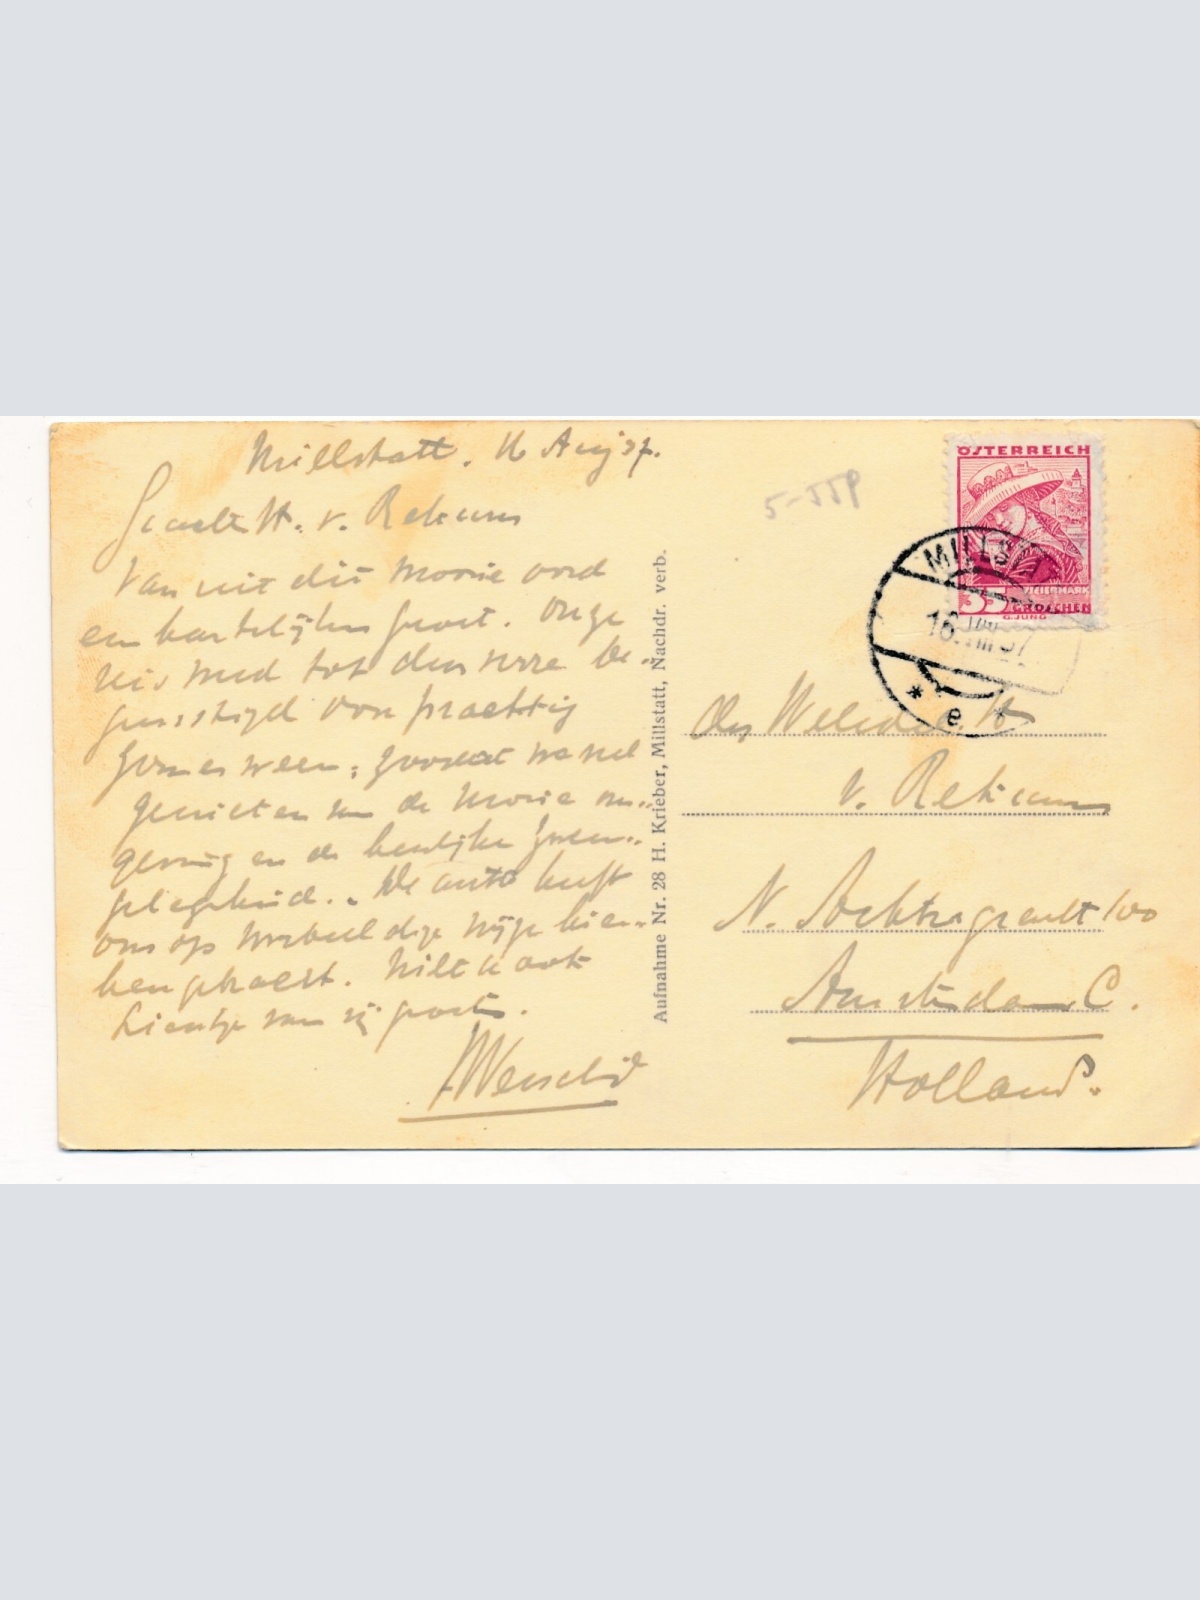 Millstatt. 16 Aug 37.
Geachte H. v. Rekum
Van uit dit mooie oord
een hartelijken groet. Onze
reis werd tot dusverre be-
gunstigd door prachtig
zomerweer, zoodat we veel
genieten van de mooie om-
geving en de heerlijke zwem-
gelegenheid. De auto heeft
ons op wijze hier-
heen gebracht. Wilt u ook
van mij groeten.
5-55P
ÖSTERREICH
STEIERMARK
35 GROSCHEN
G. JUNG
MILLSTATT
16. VIII 37
* e *
Aufnahme Nr. 28 H. Krieber, Millstatt, Nachdr. verb.
H
v. Rekum
N. Achtergracht 100
Amsterdam C.
Holland.